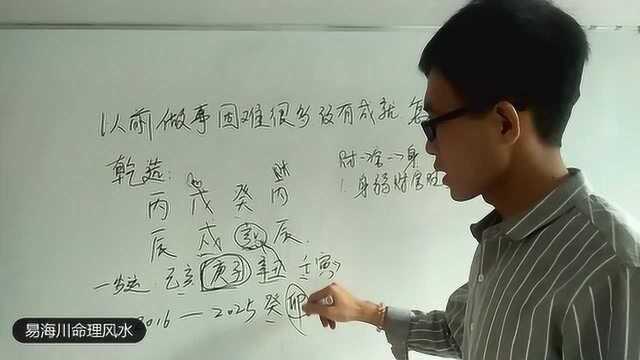 以前做事困难很多没有成就
财→官→身
乾造:
1.身弱财官旺
丙 戊 癸 丙
辰 戌 丑 辰
一步运:己亥 庚子 辛丑 壬寅
2016—2025 癸卯
易海川命理风水